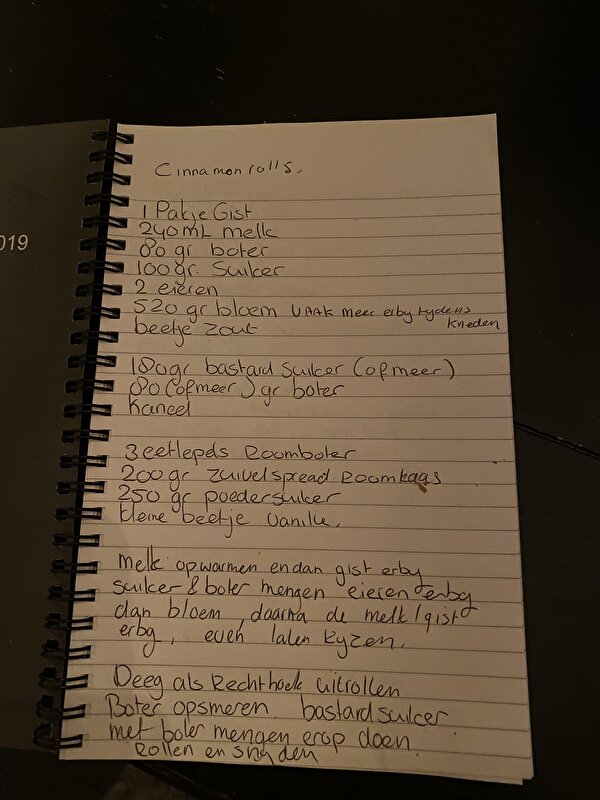 019
Cinnamon rolls.
1 Pakje Gist
240ml melk
80 gr boter
100gr. Suiker
2 eieren
520 gr bloem VAAK meer erby tydens kneden
beetje zout
180gr bastard suiker (of meer)
80 (of meer) gr boter
kaneel
3 eetlepels Roomboter
200 gr zuivelspread Roomkaas
250 gr poedersuiker
kleine beetje vanille.
Melk opwarmen en dan gist erby
suiker & boter mengen eieren erby
dan bloem, daarna de melk/gist
erby, even laten Ryzen.
Deeg als Rechthoek uitrollen
Boter opsmeren bastard suiker
met boter mengen erop doen.
Rollen en snyden